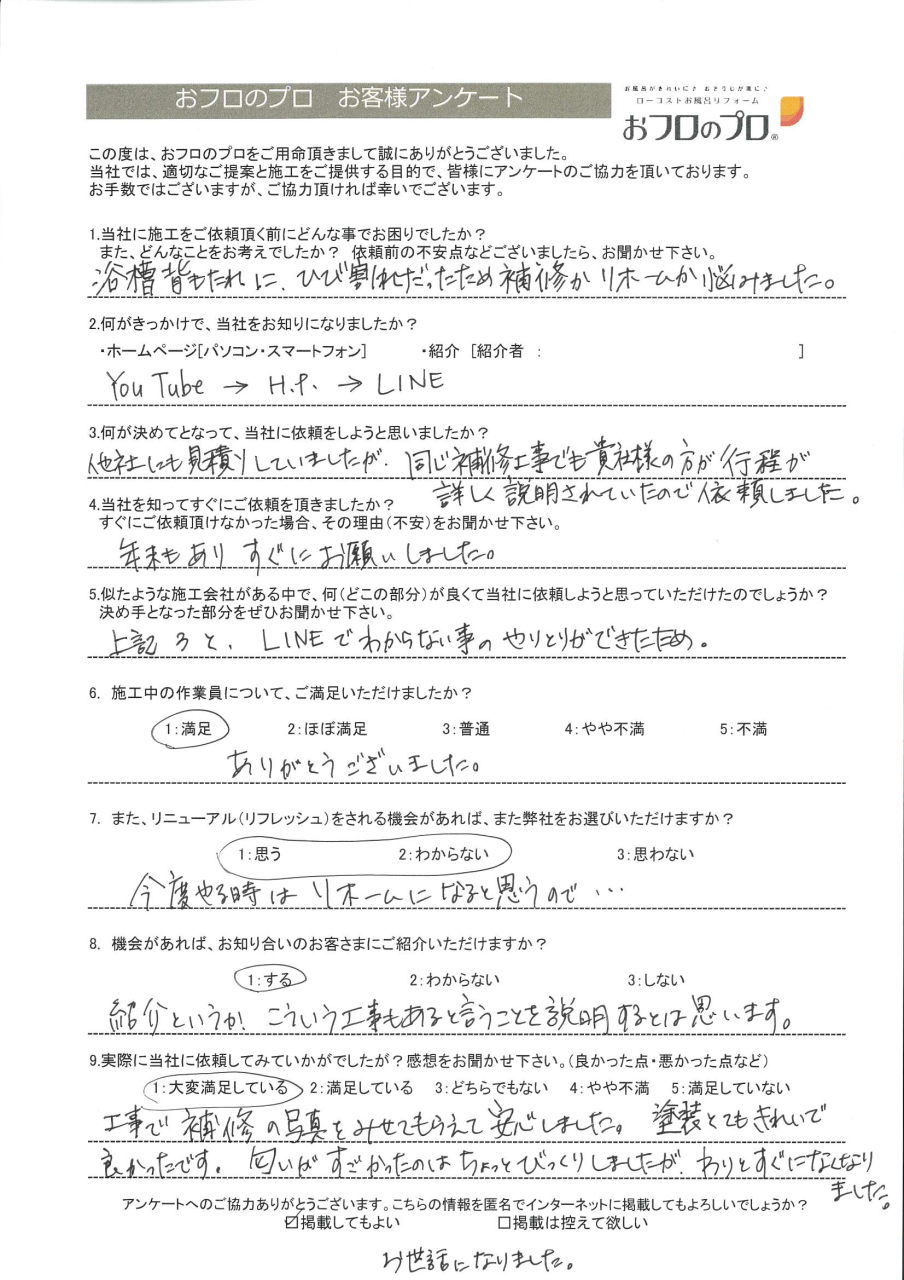 おフロのプロ　お客様アンケート
お風呂がきれいに♪ おそうじが楽に♪
ローコストお風呂リフォーム
おフロのプロ®
この度は、おフロのプロをご用命頂きまして誠にありがとうございました。
当社では、適切なご提案と施工をご提供する目的で、皆様にアンケートのご協力を頂いております。
お手数ではございますが、ご協力頂ければ幸いでございます。
1.当社に施工をご依頼頂く前にどんな事でお困りでしたか？
また、どんなことをお考えでしたか？ 依頼前の不安点などございましたら、お聞かせ下さい。
浴槽背もたれに、ひび割れだったため補修かリホームか悩みました。
2.何がきっかけで、当社をお知りになりましたか？
・ホームページ[パソコン・スマートフォン]　　・紹介 [紹介者 ：　　　　　　]
YouTube → H.P. → LINE
3.何が決めてとなって、当社に依頼をしようと思いましたか？
他社にも見積りしていましたが、同じ補修工事でも貴社様の方が行程が
詳しく説明されていたので依頼しました。
4.当社を知ってすぐにご依頼を頂きましたか？
すぐにご依頼頂けなかった場合、その理由(不安)をお聞かせ下さい。
年末もありすぐにお願いしました。
5.似たような施工会社がある中で、何(どこの部分)が良くて当社に依頼しようと思っていただけたのでしょうか？
決め手となった部分をぜひお聞かせ下さい。
上記3と、LINEでわからない事のやりとりができたため。
6. 施工中の作業員について、ご満足いただけましたか？
1:満足　2:ほぼ満足　3:普通　4:やや不満　5:不満
ありがとうございました。
7. また、リニューアル(リフレッシュ)をされる機会があれば、また弊社をお選びいただけますか？
1:思う　2:わからない　3:思わない
今度やる時はリホームになると思うので・・・
8. 機会があれば、お知り合いのお客さまにご紹介いただけますか？
1:する　2:わからない　3:しない
紹介というか、こういう工事もあると言うことを説明するとは思います。
9.実際に当社に依頼してみていかがでしたが？感想をお聞かせ下さい。(良かった点・悪かった点など)
1:大変満足している　2:満足している　3:どちらでもない　4:やや不満　5:満足していない
工事で補修の写真をみせてもらえて安心しました。塗装とてもきれいで
良かったです。匂いがすごかったのはちょっとびっくりしましたが、わりとすぐになくなり
ました。
アンケートへのご協力ありがとうございます。こちらの情報を匿名でインターネットに掲載してもよろしいでしょうか？
☑掲載してもよい　□掲載は控えて欲しい
お世話になりました。